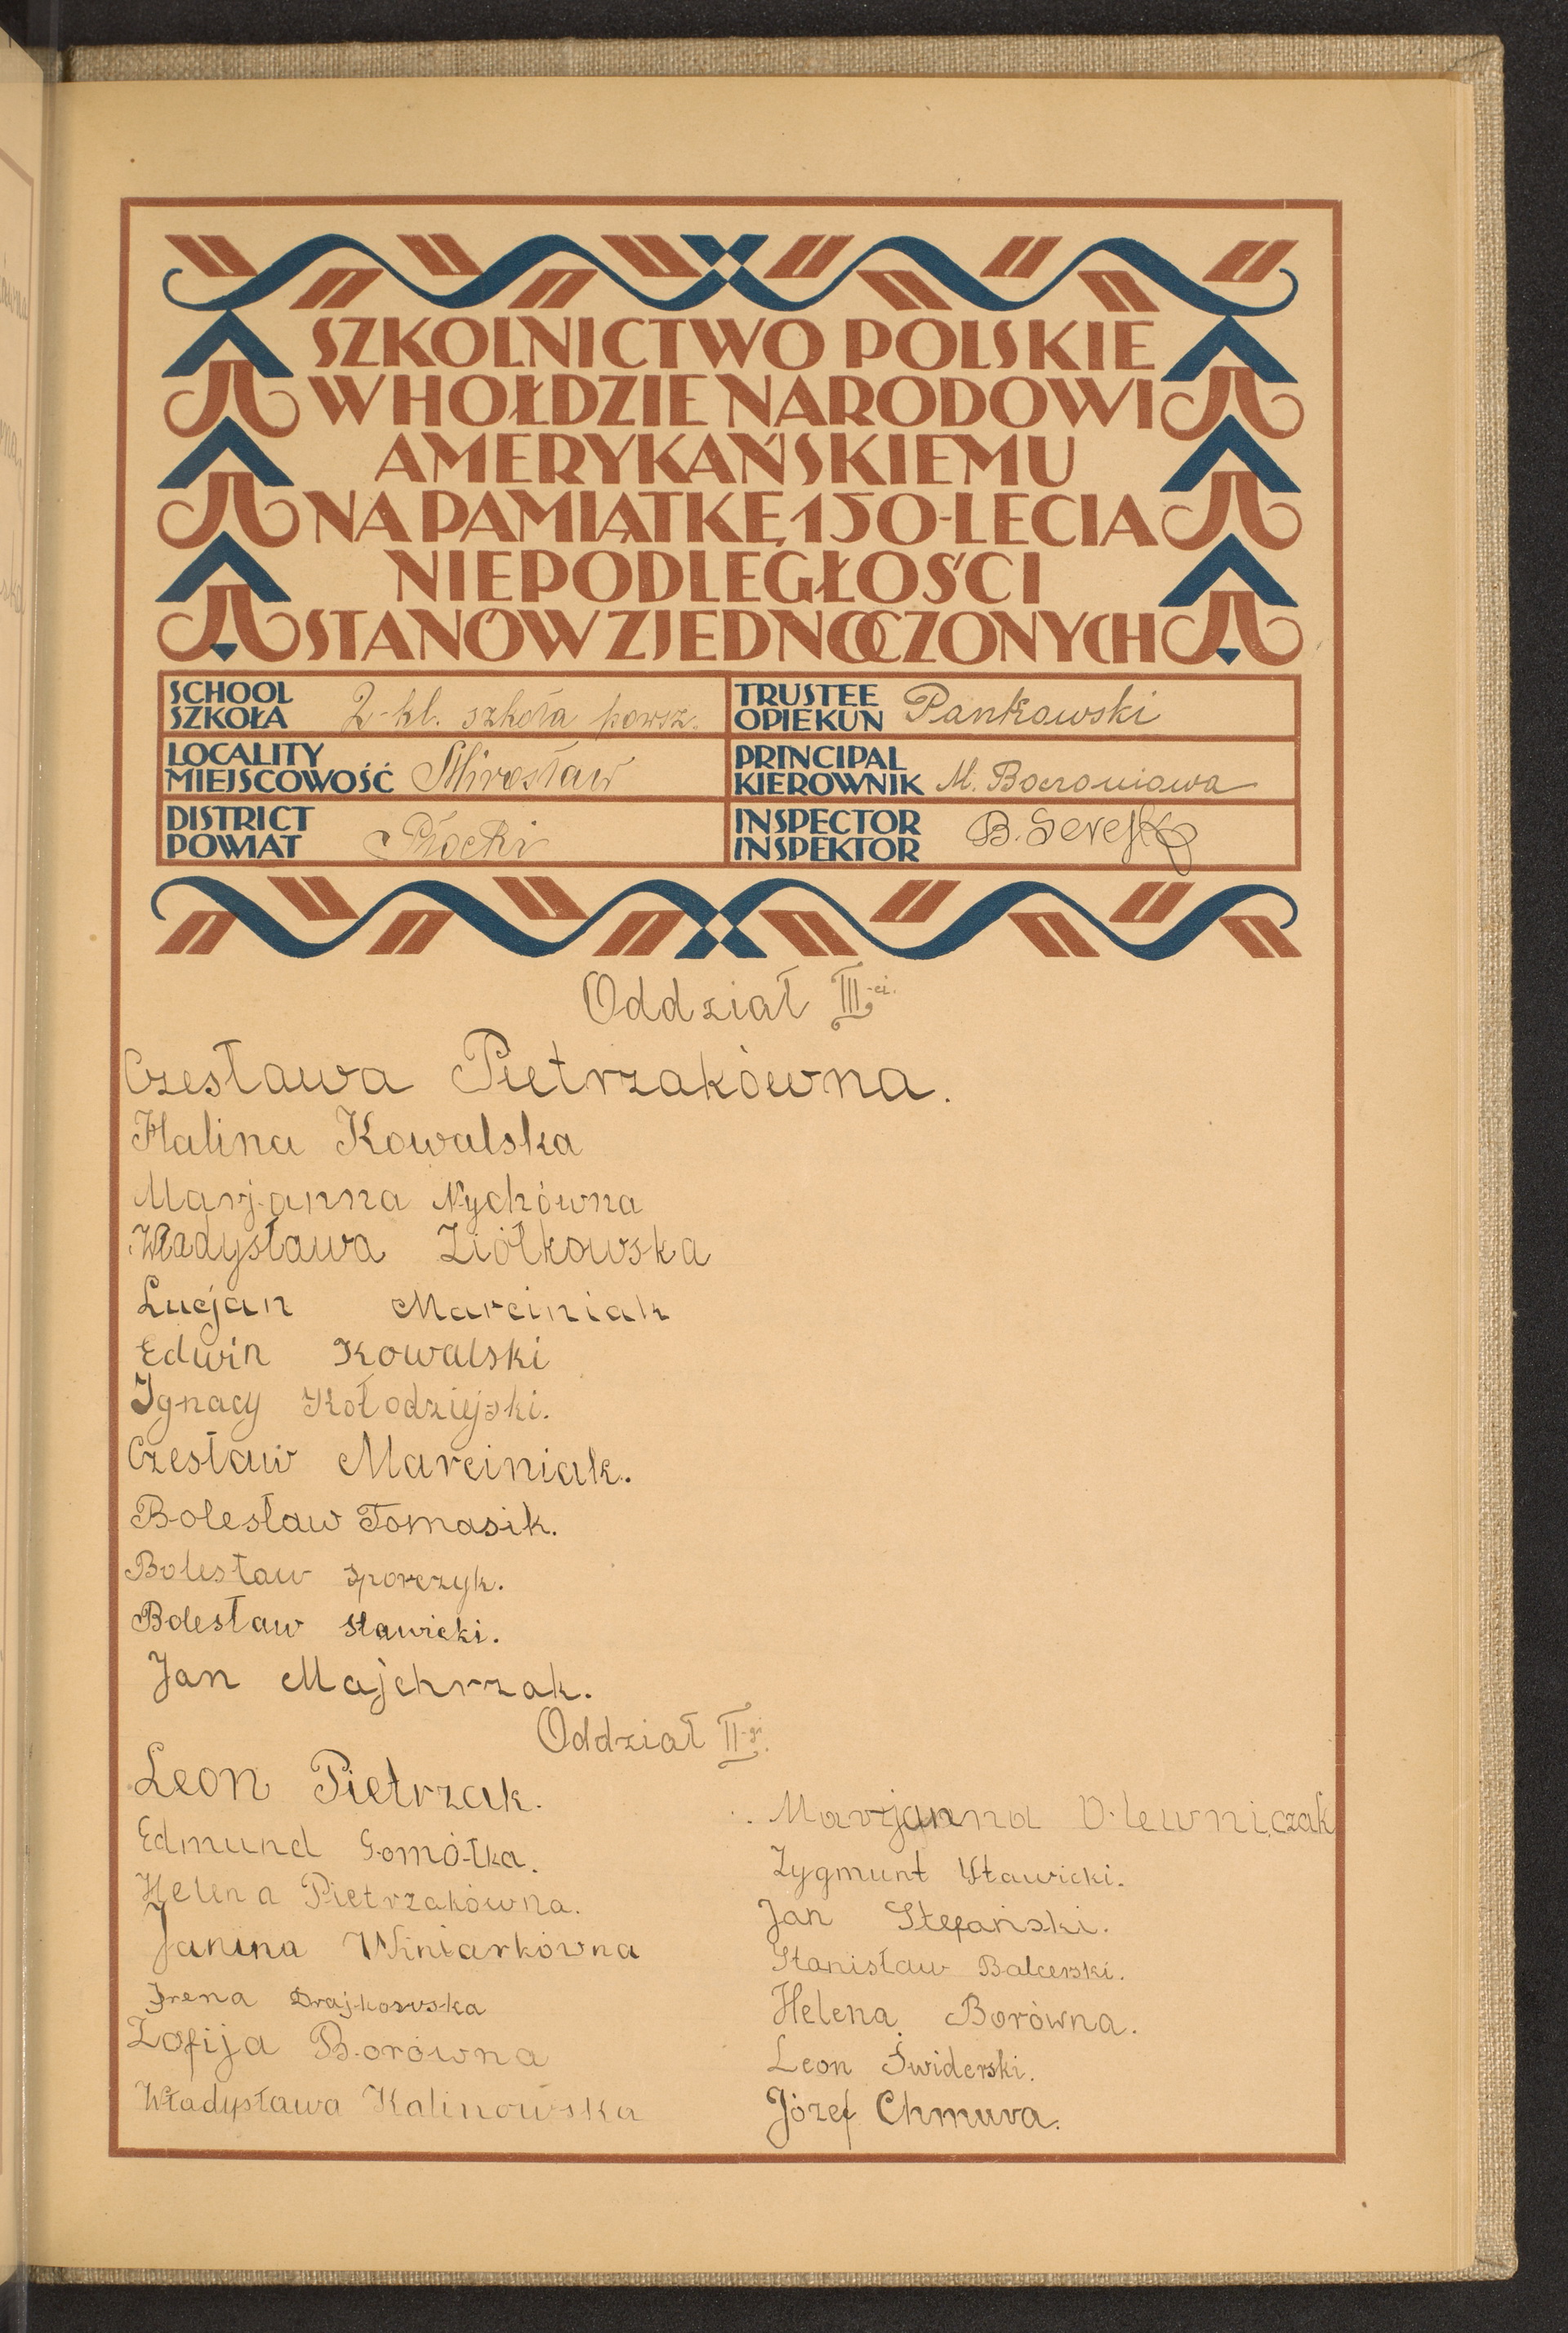 SZKOLNICTWO POLSKIE
W HOŁDZIE NARODOWI
AMERYKAŃSKIEMU
NA PAMIĄTKĘ 150-LECIA
NIEPODLEGŁOŚCI
STANÓW ZJEDNOCZONYCH
SCHOOL
SZKOŁA 2-kl. szkoła powsz.
TRUSTEE
OPIEKUN Pankowski
LOCALITY
MIEJSCOWOŚĆ Mirosław
PRINCIPAL
KIEROWNIK M.
DISTRICT
POWIAT Płocki
INSPECTOR
INSPEKTOR B.
Oddział III-ci.
Czesława Pietrzakówna.
Halina Kowalska
Marjanna Nychówna
Władysława Ziółkowska
Lucjan Marciniak
Edwin Kowalski
Ignacy Kołodziejski.
Czesław Marciniak.
Bolesław Tomasik.
Bolesław Sporczyk.
Bolesław Sławicki.
Jan Majchrzak.
Oddział II-gi.
Leon Pietrzak.
Edmund Gomółka.
Helena Pietrzakówna.
Janina Winiarkówna
Irena Drajkowska
Zofija Borówna
Władysława Kalinowska
Marjanna Olewniczak
Zygmunt Sławicki.
Jan Stefański.
Stanisław Balcerski.
Helena Borówna.
Leon Świderski.
Józef Chmura.